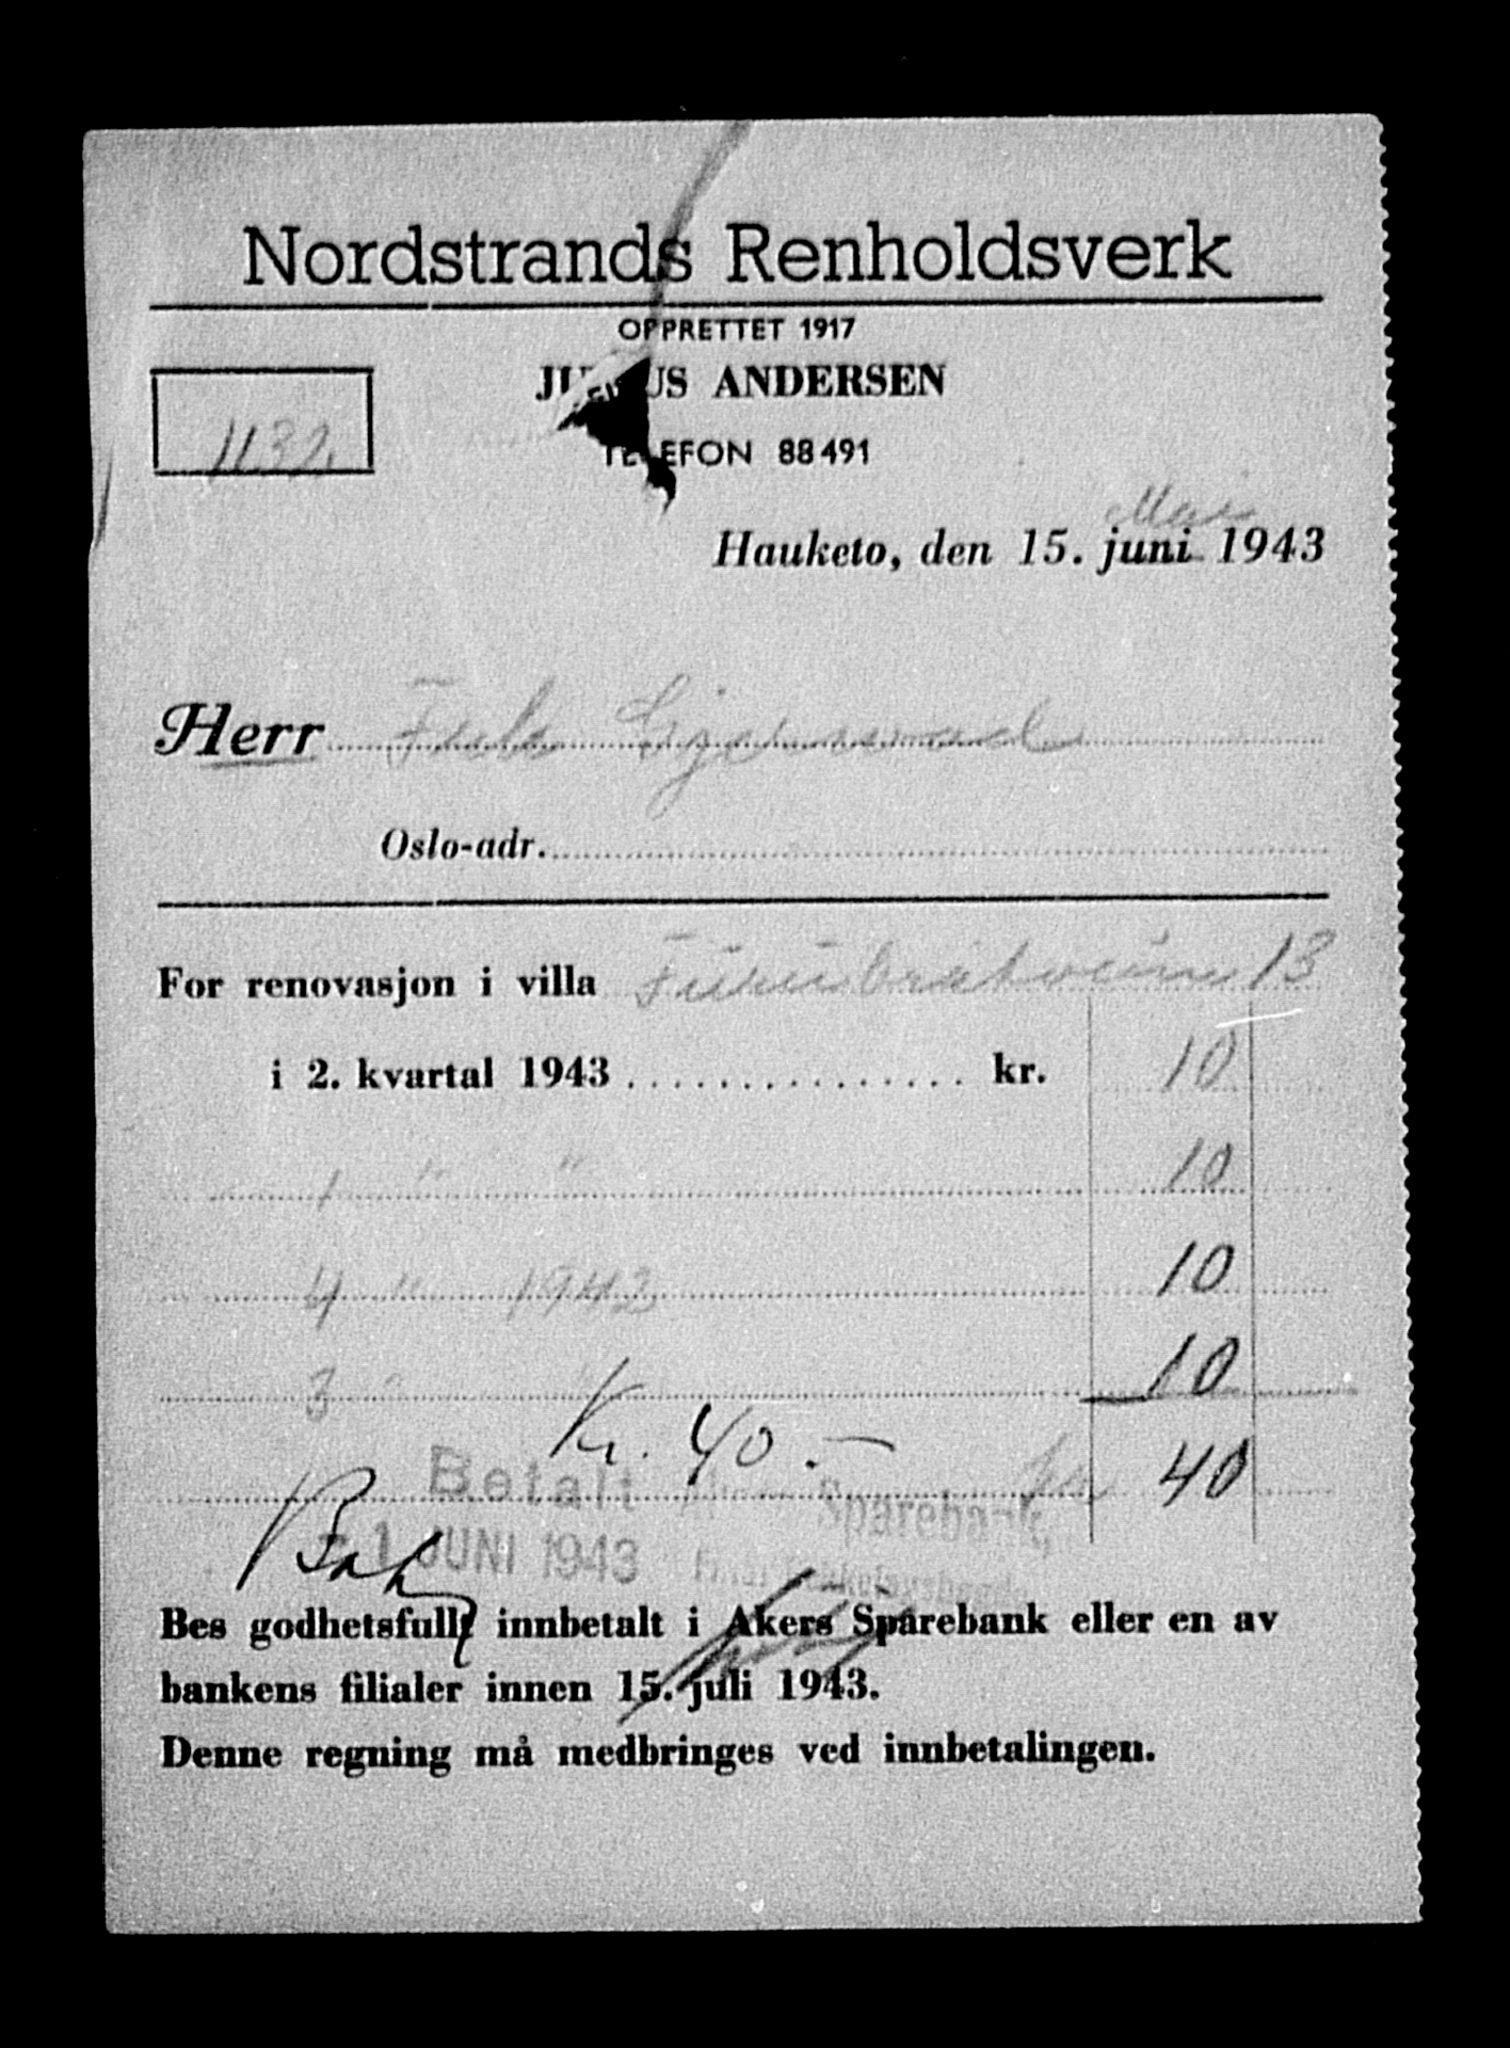 Nordstrands Renholdsverk
OPPRETTET 1917
JULIUS ANDERSEN
1132
TELEFON 88491
Mai
Hauketo, den 15. juni 1943
Herr
Oslo-adr.
For renovasjon i villa 13
i 2. kvartal 1943 ............... kr. 10
1 " " 10
4 " 1942 10
3 " " 10
Kr. 40.-
40
Betalt Sparebank,
- 1 JUNI 1943
Bes godhetsfullt innbetalt i Akers Sparebank eller en av
bankens filialer innen 15. juli 1943.
Denne regning må medbringes ved innbetalingen.